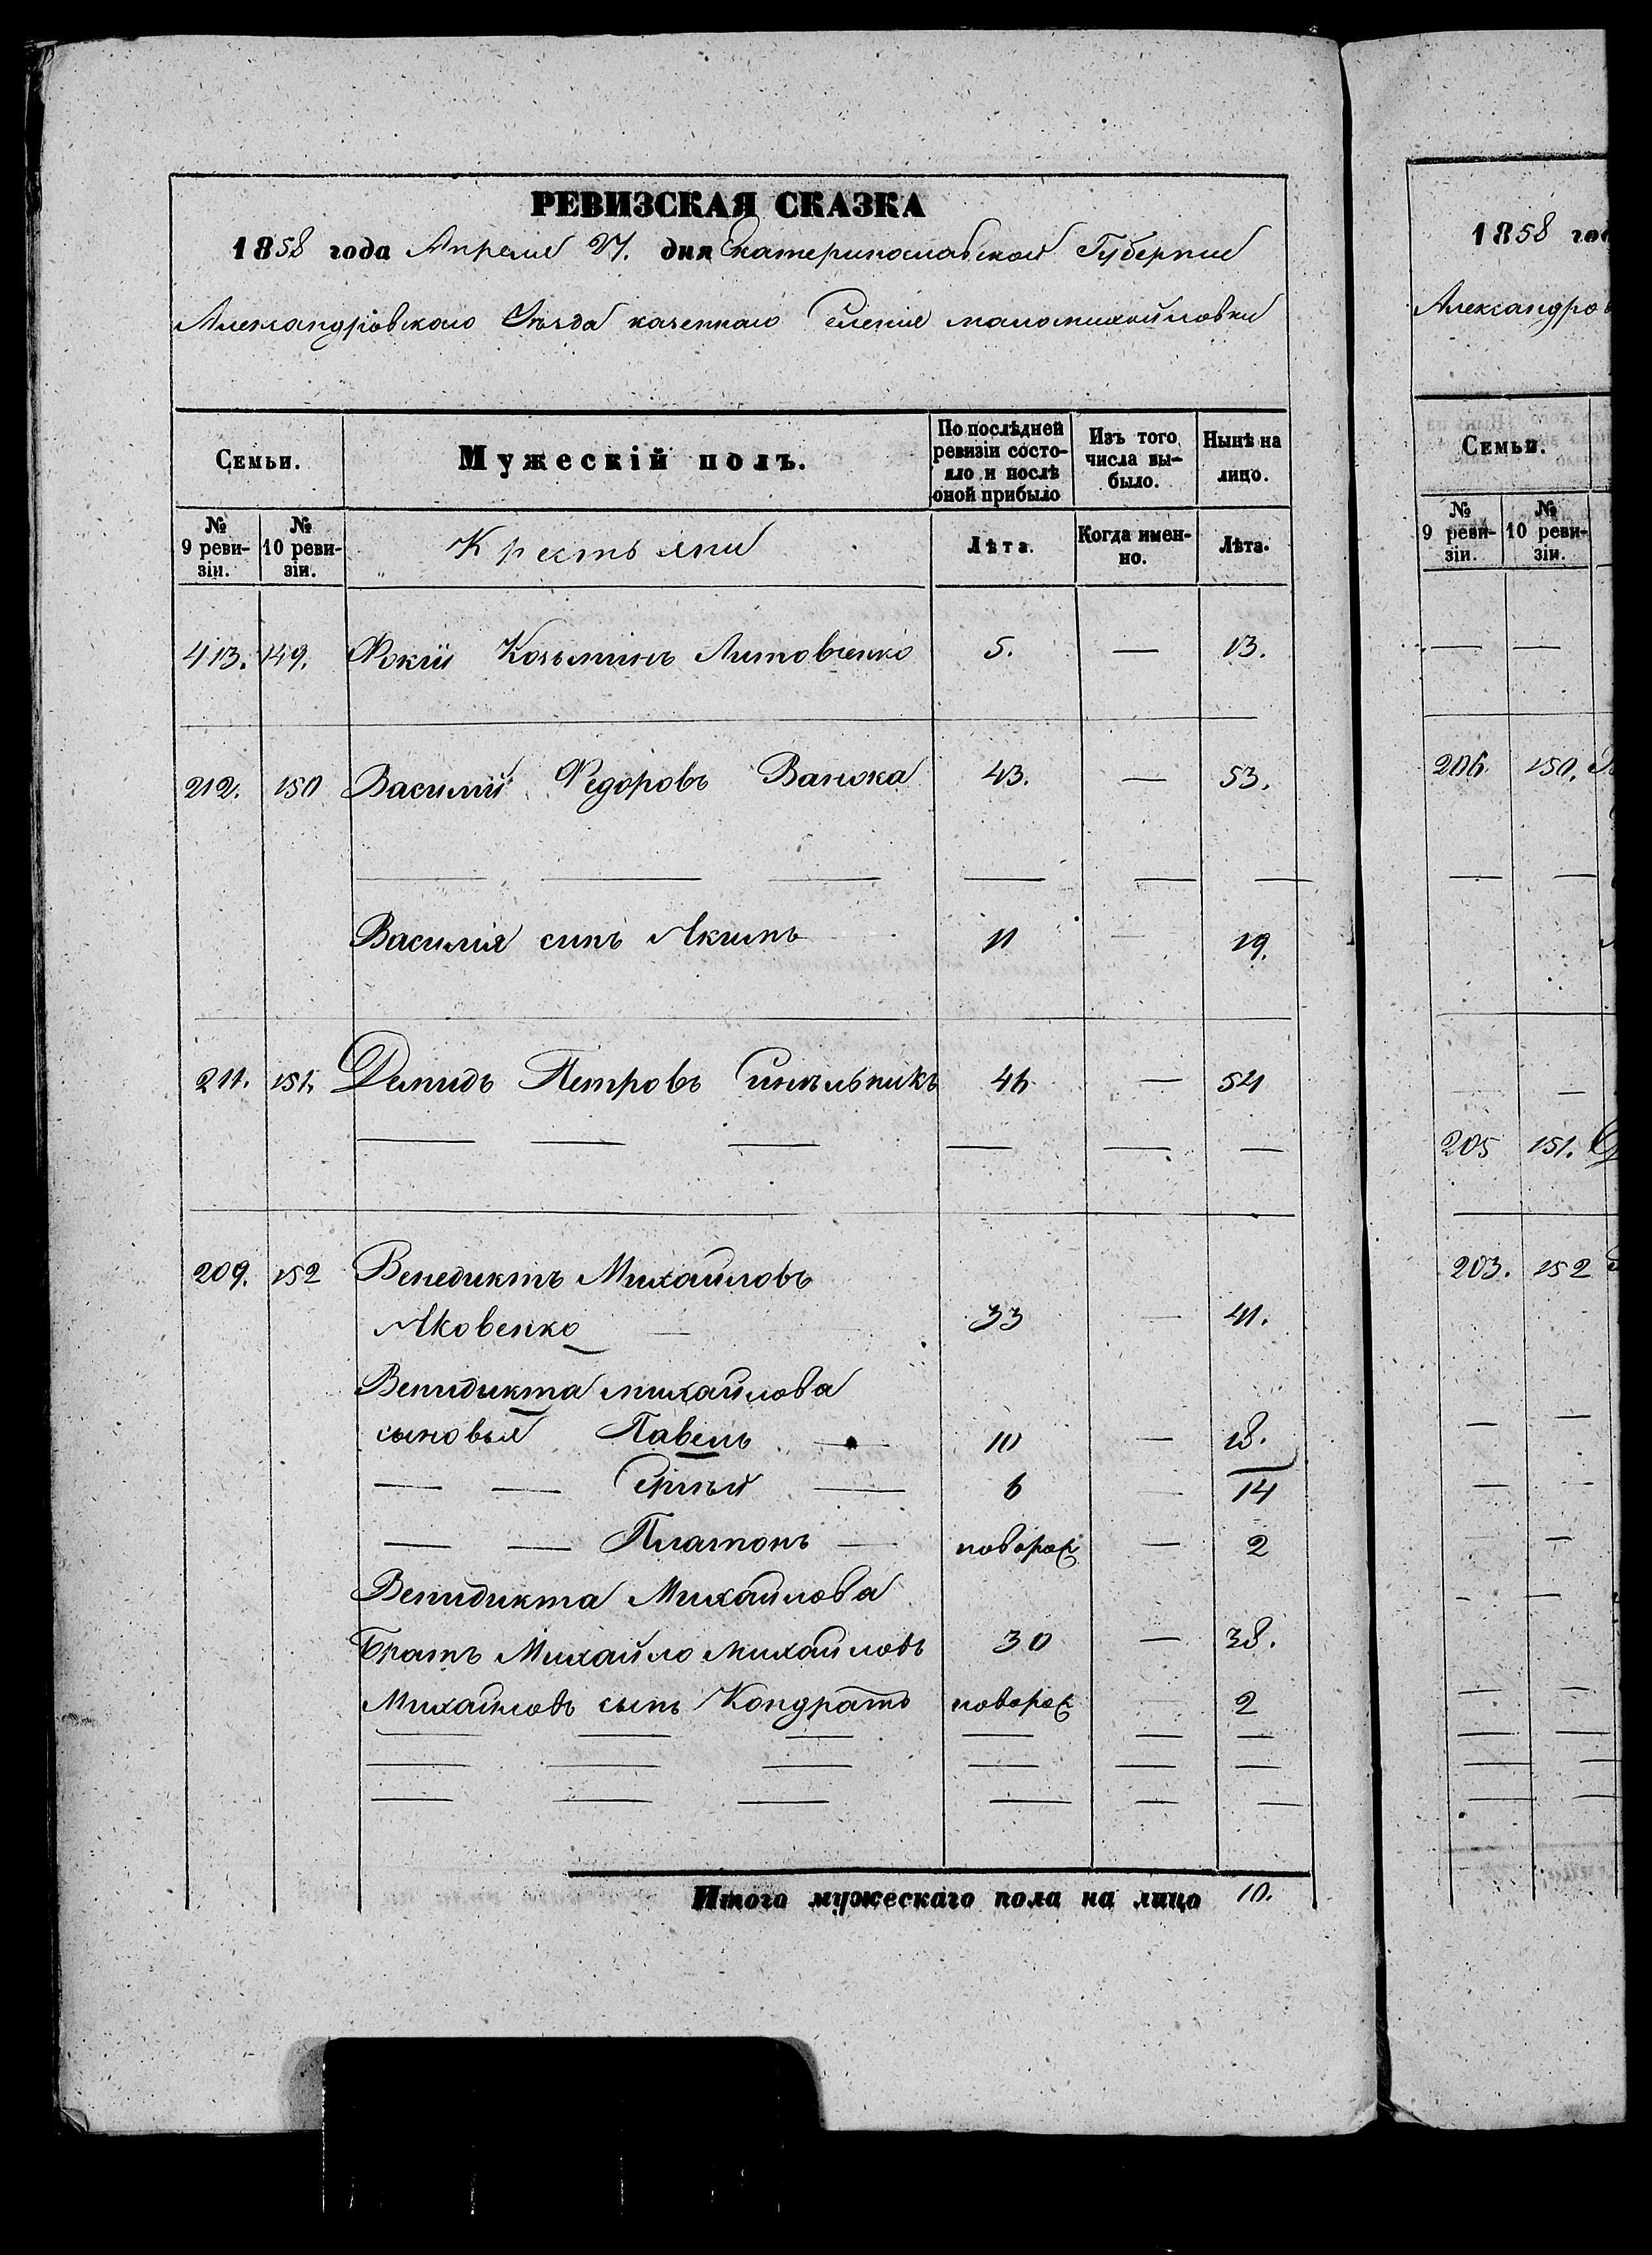 РЕВИЗСКАЯ СКАЗКА
1858 года Апреля 27. дня Екатеринославской Губернии
Александровского Оѣзда казенного Селенія маломихайловки
Семьи. Мужескій полъ. По послѣдней ревизіи состояло и послѣ оной прибыло Изъ того числа выбыло. Нынѣ на лицо.
№ 9 ревизіи. № 10 ревизіи. Крестьяни Лѣта. Когда именно. Лѣта.
413. 149. Фокій Козьминъ Литовченко 5. — 13.
212. 150 Василий Федоровъ Ванжа 43. — 53.
Василия синъ Якимъ 11 — 19.
211. 151. Демидъ Петровъ Синѣльникъ 46 — 54
209. 152 Венедиктъ Михайловъ
Яковенко — 33 — 41.
Венидикта михайлова
сыновья Павелъ — 10 — 18.
— — Сергѣй — 6 — 14
— — Платонъ — новорож — 2
Венидикта Михайлова
Братъ Михайло михайловъ 30 — 38.
Михайловъ сынъ Кондратъ новорож 2
Итого мужескаго пола на лицо 10.
1858 год
Александров
Семьи.
№ 9 ревизіи. № 10 ревизіи.
206. 150.
205 151.
203. 152